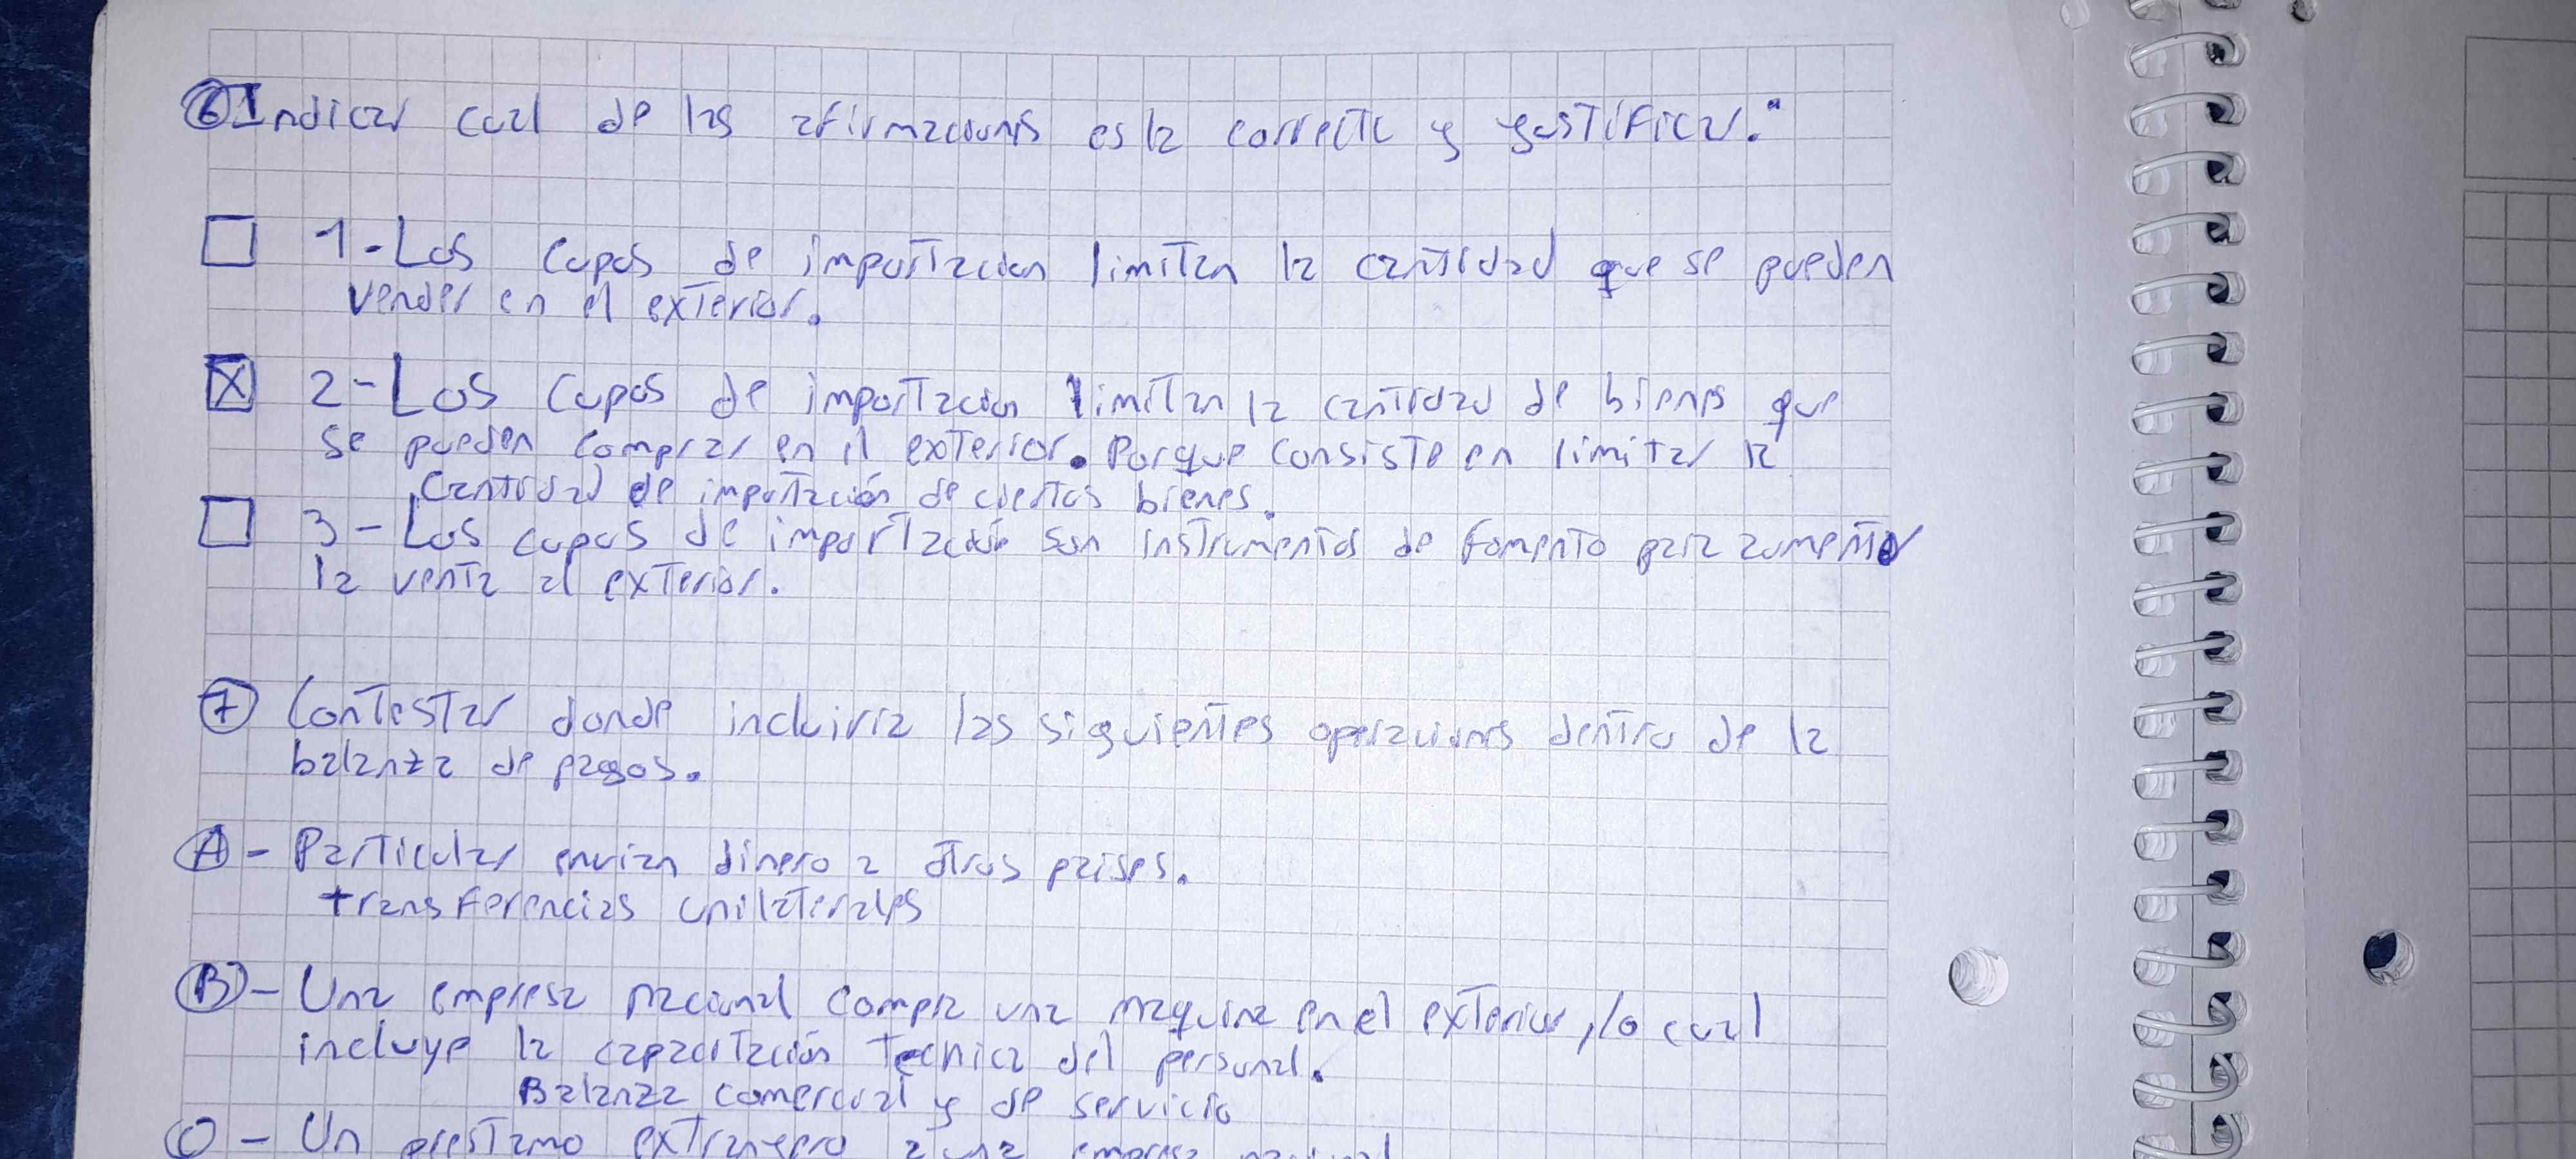 6 Indicar cual de las afirmaciones es la correcta y gustificar:"
1-Los cupos de importacion limitan la cantidad que se pueden
vender en el exterior.
X 2-Los cupos de importacion limitan la cantidad de bienes que
se pueden comprar en el exterior. Porque consiste en limitar la
cantidad de importación de ciertos bienes.
3-Los cupos de importación son instrumentos de fomento para aumentar
la venta al exterior.
7 Contestar donde incluiria las siguientes operaciones dentro de la
balanza de pagos.
A- Particular envian dinero a otros paises.
transferencias unilaterales
B- Una empresa nacional compra una maquina en el exterior, lo cual
incluye la capacitación tecnica del personal.
Balanza comercial y de servicio
C- Un prestamo extrangero a una empresa nacional